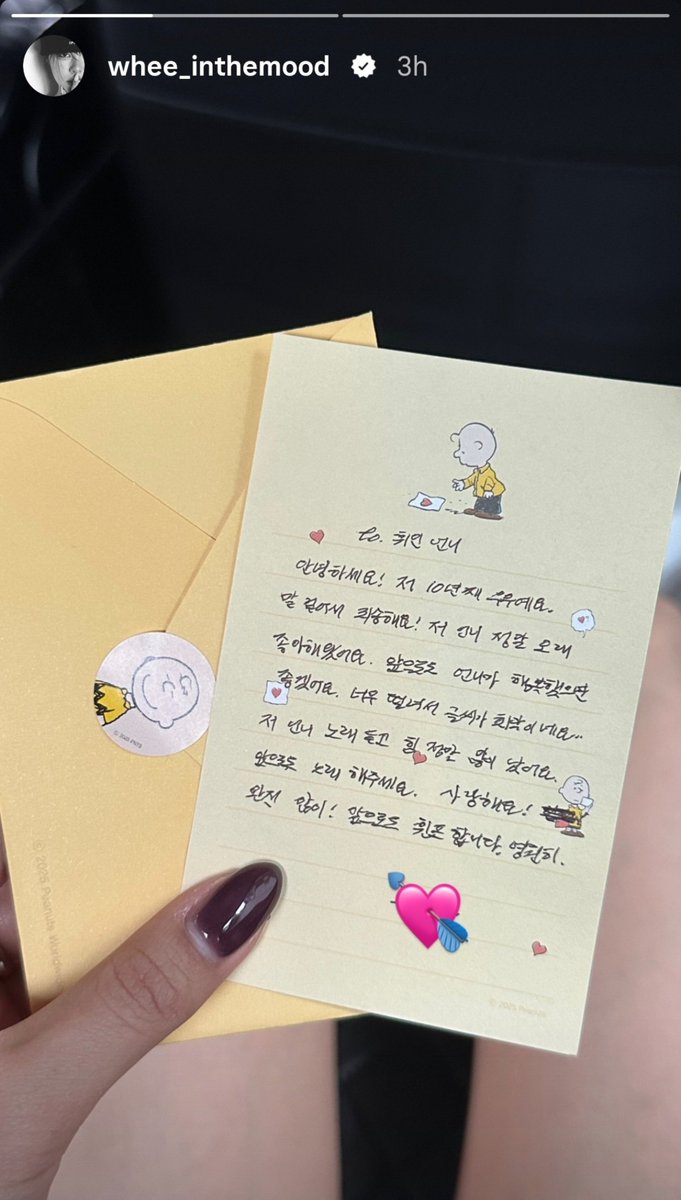 whee_inthemood 3h
to. 휘인 언니
안녕하세요! 저 10년째 우유예요.
말 걸어서 죄송해요! 저 언니 정말 오래
좋아해왔어요. 앞으로도 언니가 행복했으면
좋겠어요. 너무 떨려서 글씨가 최악이네요...
저 언니 노래 듣고 힘 정말 많이 났어요.
앞으로도 노래 해주세요. 사랑해요!
완전 많이! 앞으로도 합니다. 영원히.
© 2025 Peanuts
© 2025 Peanuts